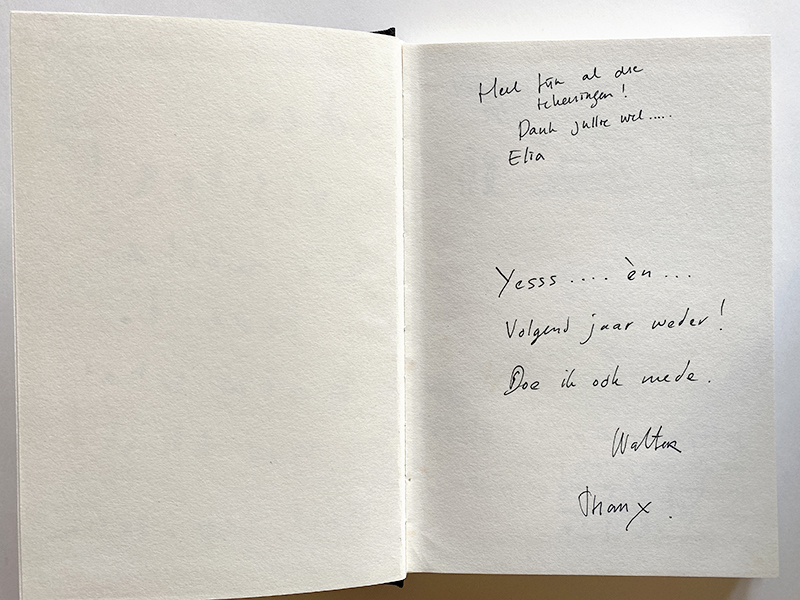 Heel fijn al die
tekeningen!
Dank jullie wel.....
Elia
Yesss .... èn ...
Volgend jaar weder!
Doe ik ook mede.
Walter
Thanx.